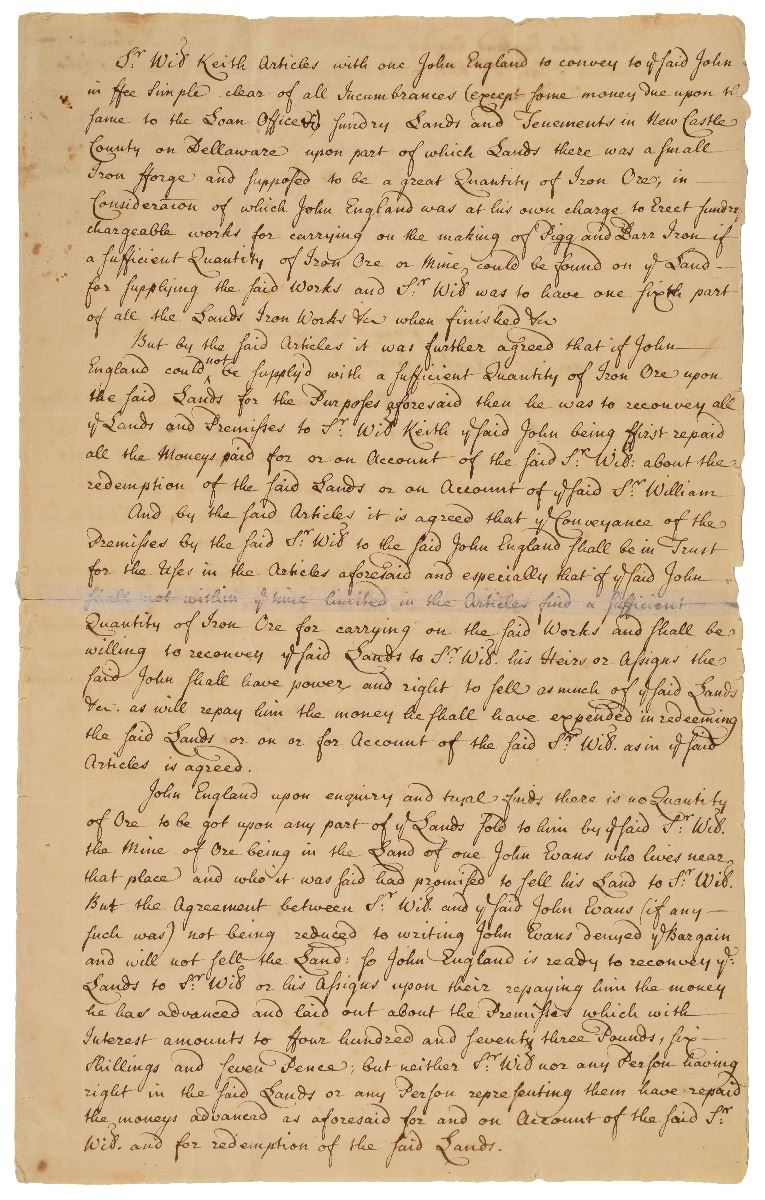 Sr. Wm Keith Articles with one John England to convey to ye said John
in ffee Simple clear of all Incumbrances (except some money due upon the
same to the Loan Office) sundry Lands and Tenements in New Castle
County on Dellaware upon part of which Lands there was a small
Iron fforge and supposed to be a great Quantity of Iron Ore; in
Consideraion of which John England was at his own charge to Erect sundry
chargeable works for carrying on the making of Pigg and Barr Iron if
a sufficient Quantity of Iron Ore or Mine could be found on ye Land
for supplying the said Works and Sr. Wm was to have one sixth part
of all the Lands Iron Works &c when finished &c
But by the said Articles it was further agreed that if John
England could not be supply'd with a sufficient Quantity of Iron Ore upon
the said Lands for the Purposes aforesaid then he was to reconvey all
ye Lands and Premisses to Sr. Wm Keith ye said John being ffirst repaid
all the Moneys paid for or on Account of the said Sr. Wm: about the
redemption of the said Lands or on Account of ye said Sr. William
And by the said Articles it is agreed that ye Conveyance of the
Premisses by the said Sr. Wm to the said John England shall be in Trust
for the Uses in the Articles aforesaid and especially that if ye said John
shall not within ye time limited in the Articles find a sufficient
Quantity of Iron Ore for carrying on the said Works and shall be
willing to reconvey ye said Lands to Sr. Wm. his Heirs or Assigns the
said John shall have power and right to sell as much of ye said Lands
&c. as will repay him the money he shall have expended in redeeming
the said Lands or on or for Account of the said Sr. Wm. as in ye said
Articles is agreed.
John England upon enquiry and tryal finds there is no Quantity
of Ore to be got upon any part of ye Lands sold to him by ye said Sr. Wm.
the Mine of Ore being in the Land of one John Evans who lives near
that place and who it was said had promised to sell his Land to Sr. Wm.
But the Agreement between Sr. Wm. and ye said John Evans (if any
such was) not being reduced to writing John Evans denyed ye Bargain
and will not sell the Land: so John England is ready to reconvey ye:
Lands to Sr. Wm or his Assigns upon their repaying him the money
he has advanced and laid out about the Premisses which with
Interest amounts to ffour hundred and seventy three Pounds, six
Shillings and seven Pence; but neither Sr. Wm nor any Person having
right in the said Lands or any Person representing them have repaid
the moneys advanced as aforesaid for and on Account of the said Sr.
Wm. and for redemption of the said Lands.